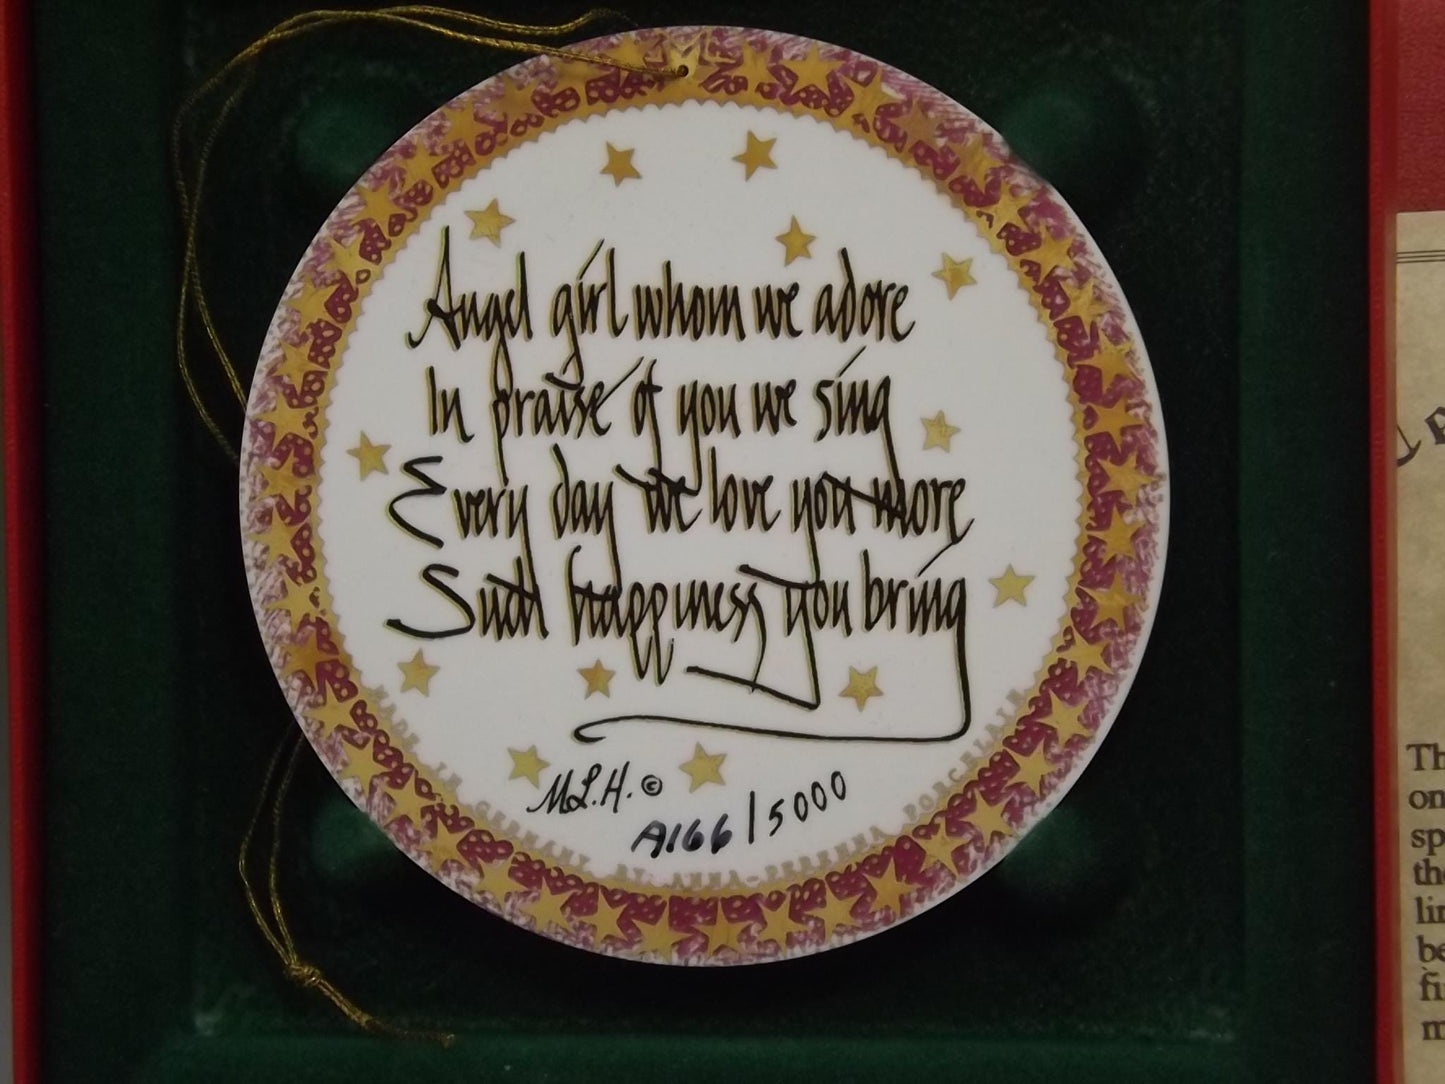 Angel girl whom we adore
In praise of you we sing
Every day we love you more
Such happiness you bring
M.L.H. ©
A166/5000
MADE IN GERMANY BY ANNA-PERENNA PORCELAIN
Th
on
sp
the
lin
be
fi
m